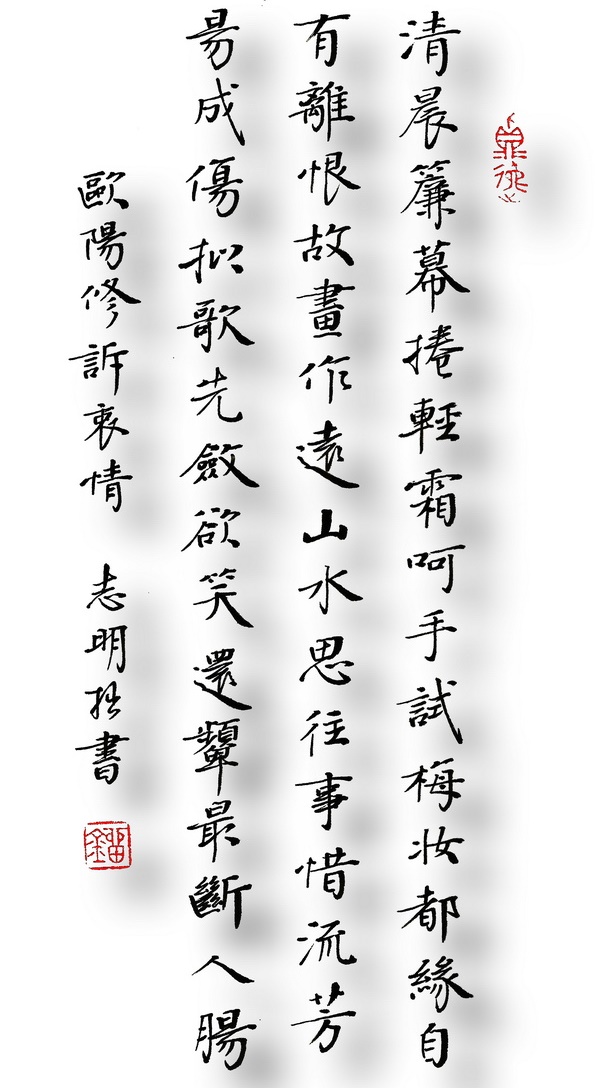 清晨簾幕捲輕霜呵手試梅妝都緣自
有離恨故畫作遠山水思往事惜流芳
易成傷拟歌先斂欲笑還顰最斷人腸
歐陽修訴衷情 志明拙書